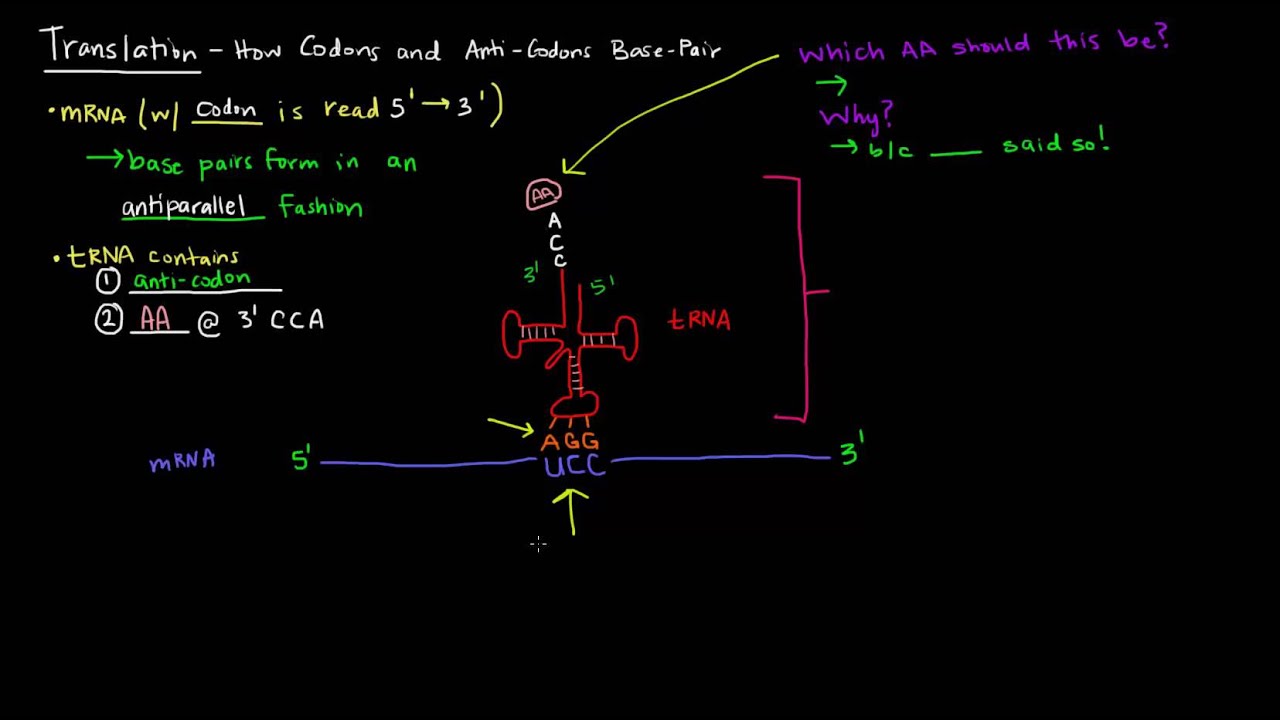 Translation - How Codons and Anti-Codons Base-Pair
• mRNA (w/ codon is read 5' → 3')
→ base pairs form in an
antiparallel fashion
• tRNA contains
① anti-codon
② AA @ 3' CCA
Which AA should this be?
→
Why?
→ b/c ____ said so!
AA
A
C
C
3'
5'
tRNA
AGG
mRNA 5' UCC 3'